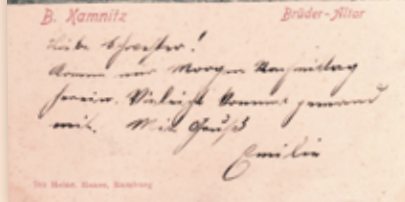 B. Kamnitz Brüder-Altar
Liebe Schwester!
Komme nur Morgen Nachmittag
herein. Vieleicht kommt jemand
mit. Mit Gruß
Emilie